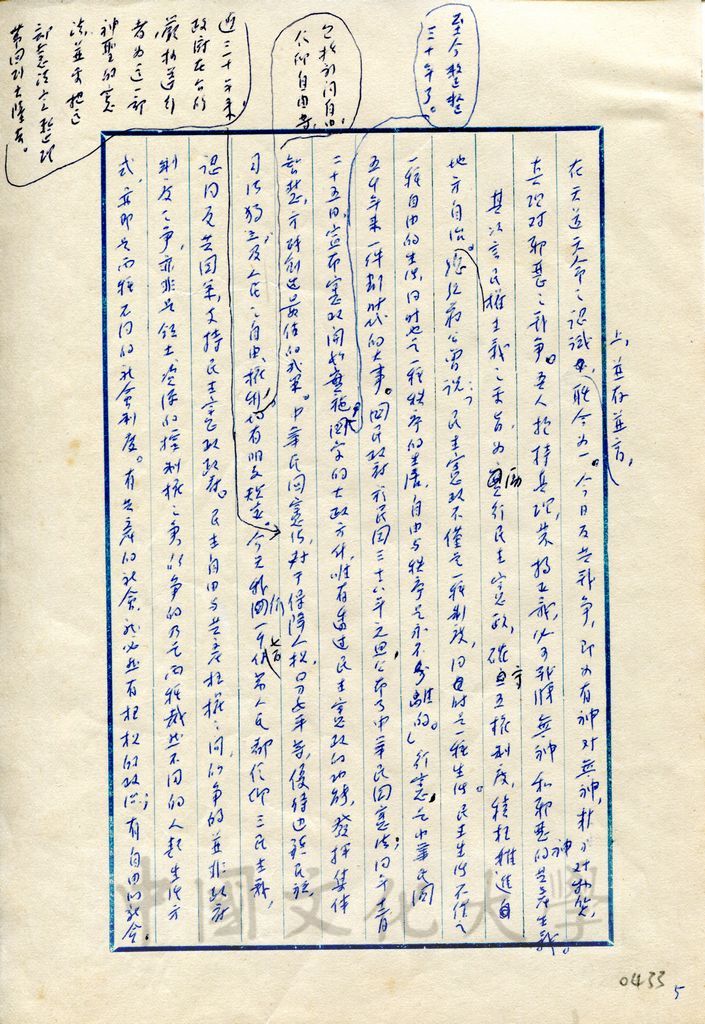 上，並存並育，
在天道天命之認識，融合為一。今日反共戰爭，即為有神對無神，朴對物質，
真理對邪惡之戰爭。吾人抱持真理，榮揚正義，必可戰勝無神和邪惡的共產主義。
神
其次言民權主義之要旨為實行民主憲政，確立五權制度，積極推進自
厲
守
地方自治。總統蔣公曾說：「民主憲政不僅是一種制度，同時是一種生活。民主生活不僅是
一種自由的生活，同時也是一種秩序的生活，自由與秩序是永不分離的。」行憲是中華民國
五千年來一件劃時代的大事。國民政府於民國三十六年元旦公布了中華民國憲法；同年十二月
二十五日，宣布憲政開始實施。國家的大政方針，唯有透過民主憲政的功能，發揮集體
至今整整
三十年了。
智慧，方能創造最佳的成果。中華民國憲法，對于保障人權，男女平等，優待邊疆民族
司法獨立及人民之自由、權利均有明文規定。今天我國一千七百萬人民都信仰三民主義，
包括新聞自由，
信仰自由等，
近三十年來，
政府在台灣
嚴格遵行
神聖的憲
法，並要把這
帶回到大陸去。
認同反共國策，支持民主憲政政府。民主自由與共產極權之間的爭的並非政府
制度之爭，亦非是領土資源的控制權之爭，所爭的乃是兩種截然不同的人類生活方
式，亦即是兩種不同的社會制度。有共產的社會，就必然有極權的政治；有自由的社會，
中國文化大學
0433
5